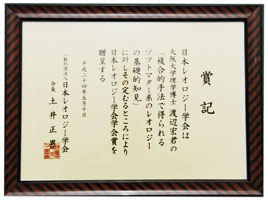 賞記
日本レオロジー学会は
大阪大学理学博士 渡辺宏君の
「複合的手法で得られる
ソフトマター系のレオロジー
の基礎的知見」
に対しその定むるところにより
日本レオロジー学会学会賞を
贈呈する
平成二十四年五月十日
一般社団法人日本レオロジー学会
会長 土井正男